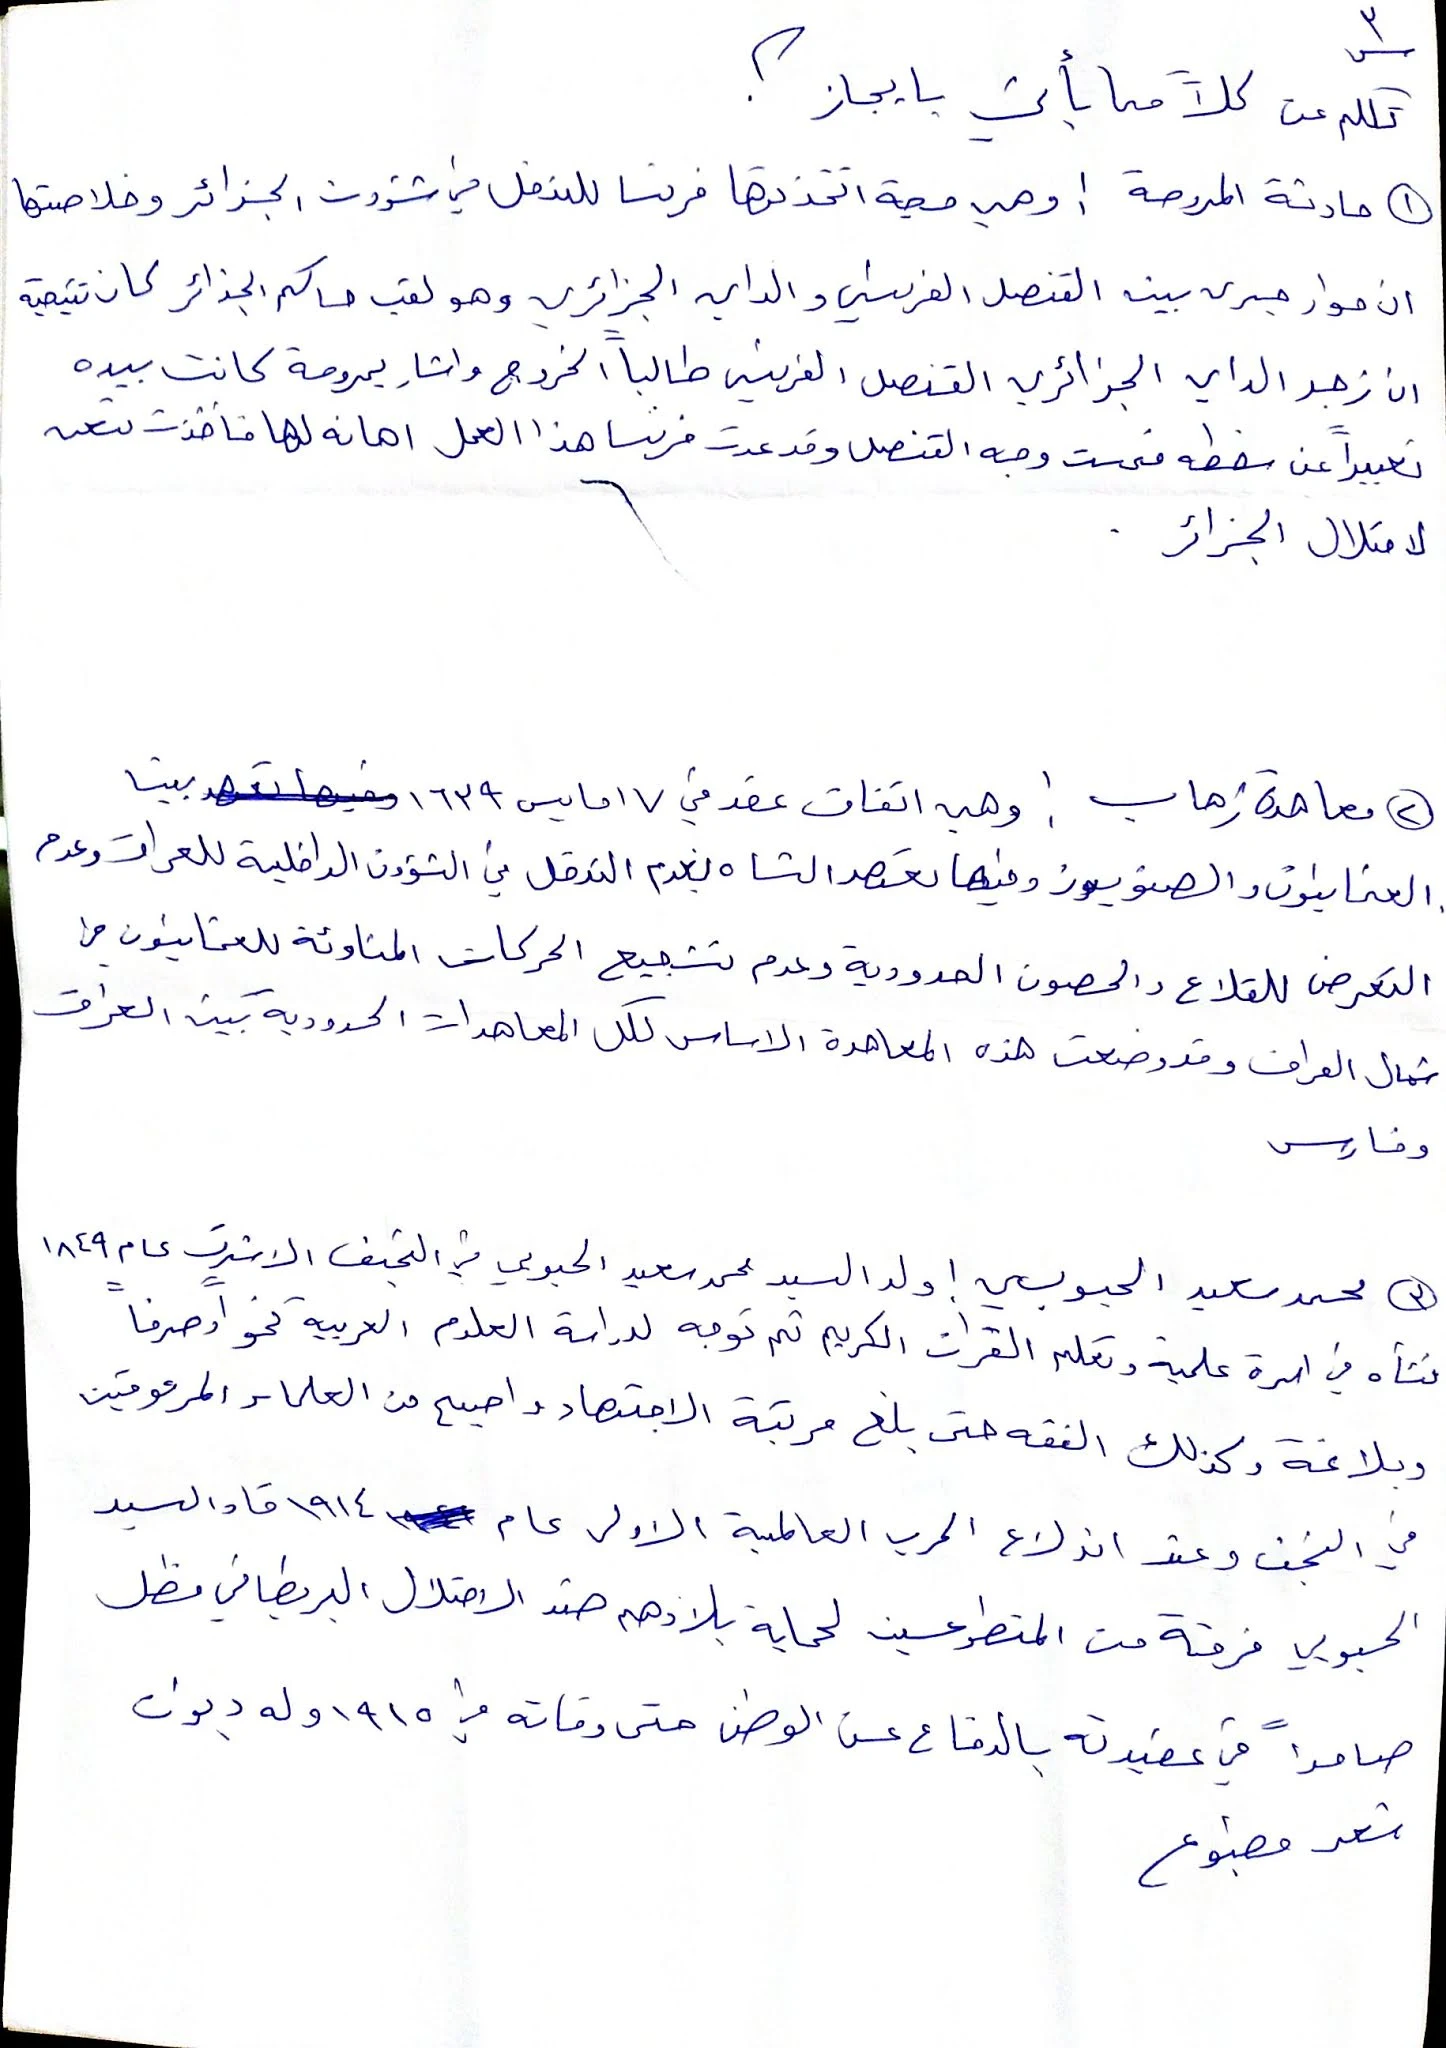 س٣
تكلم عن كلاً مما يأتي بإيجاز ؟
① حادثة المروحة : وهي حجة اتخذتها فرنسا للتدخل في شؤون الجزائر وخلاصتها
ان حوار جرى بين القنصل الفرنسي والداي الجزائري وهو لقب حاكم الجزائر كان نتيجة
ان زجر الداي الجزائري القنصل الفرنسي طالباً الخروج واشار بمروحة كانت بيده
تعبيراً عن سخطه فمست وجه القنصل وقد عدت فرنسا هذا العمل اهانه لها فأخذت تستعد
لاحتلال الجزائر .
② معاهدة زهاب : وهي اتفاق عقد في ١٧ مايس ١٦٣٩ بين
العثمانيون والصفويون وفيها تعهد الشاه بعدم التدخل في الشؤون الداخلية للعراق وعدم
التعرض للقلاع والحصون الحدودية وعدم تشجيع الحركات المناوئة للعثمانيون في
شمال العراق وقد وضعت هذه المعاهدة الاساس لكل المعاهدات الحدودية بين العراق
وفارس
③ محمد سعيد الحبوبي : ولد السيد محمد سعيد الحبوبي في النجف الاشرف عام ١٨٤٩
نشأه في اسرة علمية وتعلم القرآن الكريم ثم توجه لدراسة العلوم العربية نحواً وصرفاً
وبلاغة وكذلك الفقه حتى بلغ مرتبة الاجتهاد واصبح من العلماء المرموقين
في النجف وعند اندلاع الحرب العالمية الاولى عام ١٩١٤ قاد السيد
الحبوبي فرقة من المتطوعين لحماية بلادهم ضد الاحتلال البريطاني فظل
صامداً في عقيدته بالدفاع عن الوطن حتى وفاته في ١٩١٥ وله ديوان
شعر مطبوع